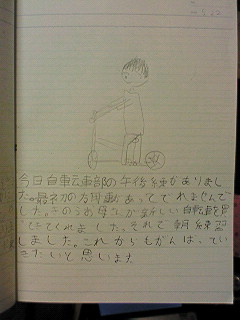 今日自車云車部の午後練がありまし
た。最初の部動あってでれませんで
した。このうお母さんが新しい自転車を買
ってくれました。それで朝練習
しました。これからもがんば、てい
きたいと思います